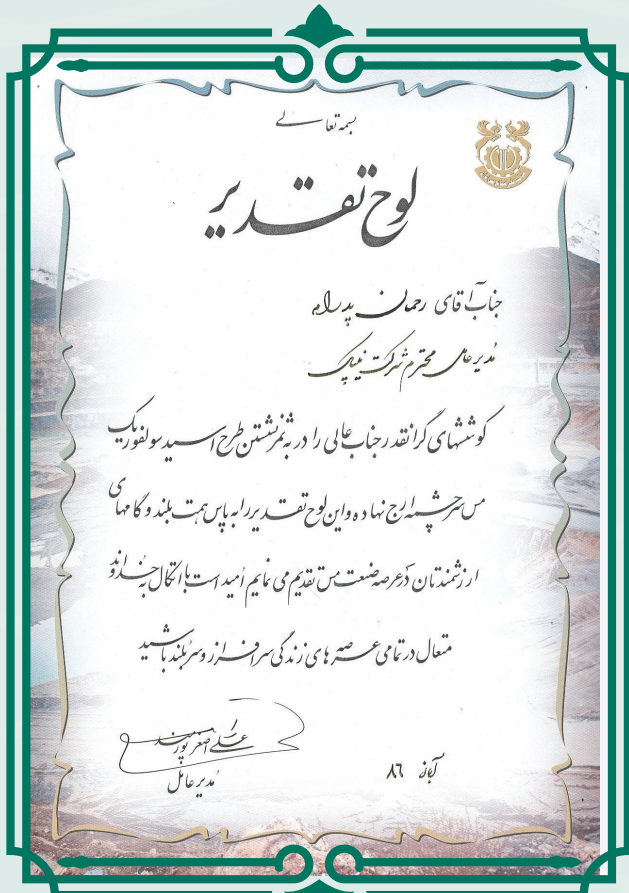 بسمه تعالی
لوح تقدیر
جناب آقای رحمان پدرام
مدیرعامل محترم شرکت نیپک
کوششهای گرانقدر جناب عالی را در به ثمر نشستن طرح اسید سولفوریک
مس سرچشمه ارج نهاده و این لوح تقدیر را به پاس همت بلند و گامهای
ارزشمندتان در عرصه صنعت مس تقدیم می نمایم امید است با اتکال به خداوند
متعال در تمامی عرصه های زندگی سرافراز و سربلند باشید
آبان ۸۶
علی اصغر پورمند
مدیر عامل